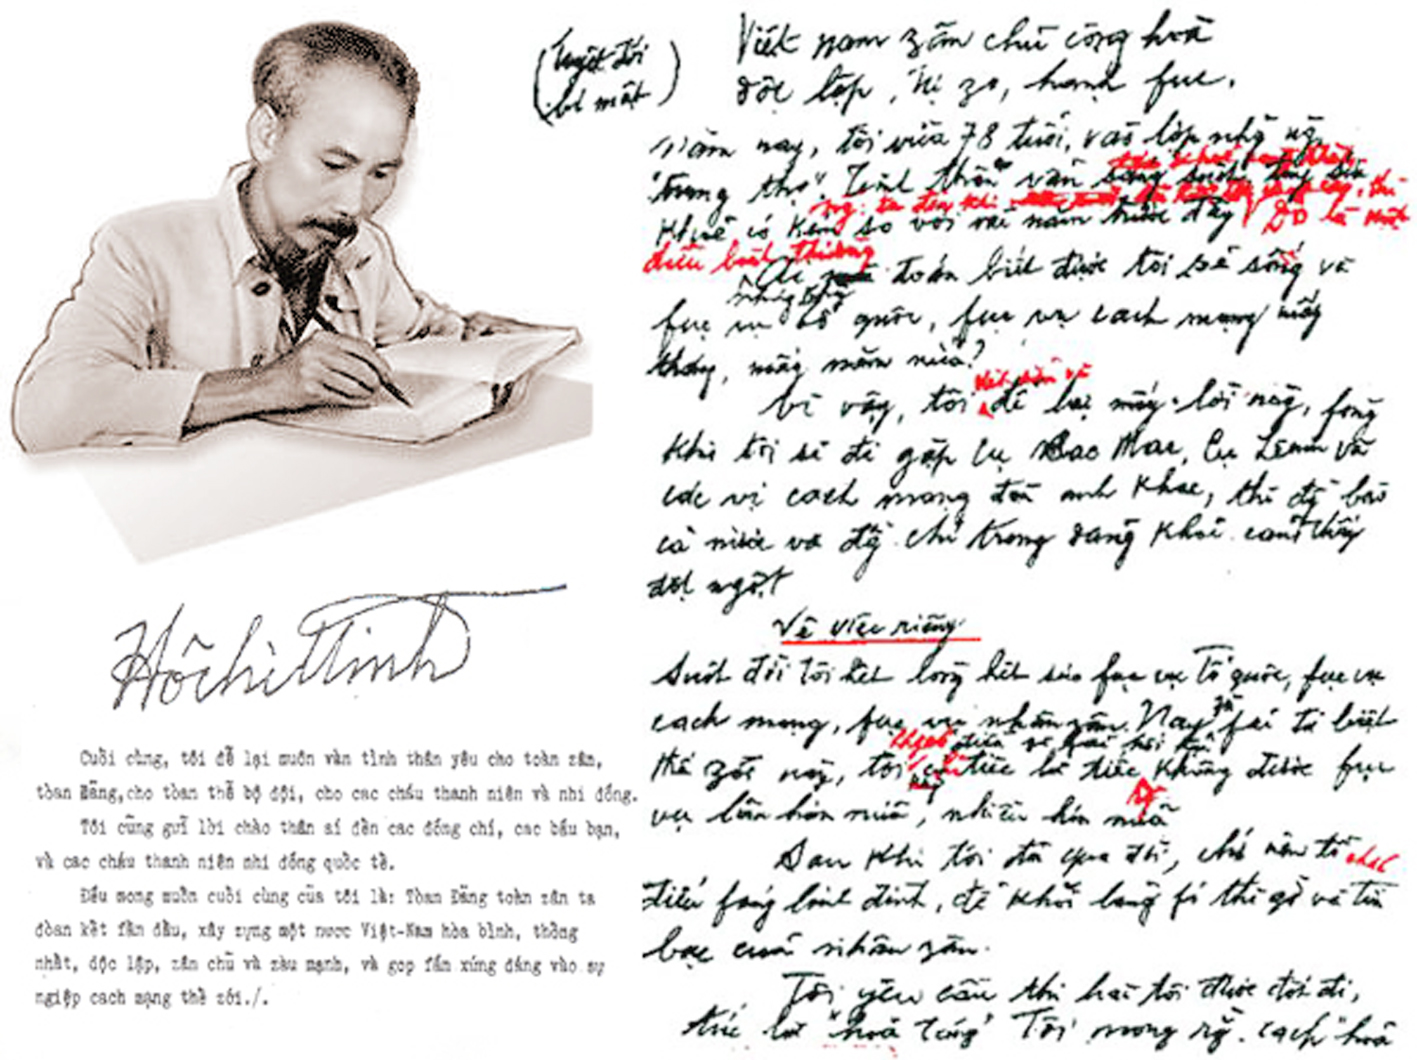 (tuyệt đối
bí mật)
Việt nam zân chủ cộng hoà
độc lập, tự zo, hạnh fúc.
năm nay, tôi vừa 78 tuổi, vào lớp nhữ ng
"trung thọ". Tinh thần vẫn sáng suốt, thân
khoẻ có kém so với vài năm trước đây Đó là một
điều bình thường
Ai mà toán biết được tôi sẽ sống và
fục vụ tổ quốc, fục vụ cách mạng mấy
tháng, mấy năm nữa?
Vì vậy, tôi để lại mấy lời này, fòng
khi tôi sẽ đi gặp Cụ Các Mác, Cụ Lênin và
các vị cách mạng đàn anh khác, thì đồng bào
cả nước và đồng chí trong đảng khỏi cảm thấy
đột ngột
Về việc riêng
Suốt đời tôi hết lòng hết sức fục vụ Tổ quốc, fục vụ
cách mạng, fục vụ nhân zân. Nay zù fải từ biệt
thế zới này, tôi không có điều gì fải hối hận
tiếc là tiếc không được fục
vụ lâu hơn nữa, nhiều hơn nữa
Sau khi tôi đã qua đời, chớ nên tổ chức
điếu fúng linh đình, để khỏi lãng fí thì giờ và tiền
bạc của nhân zân.
Tôi yêu cầu thi hài tôi được đốt đi,
tức là "hoả táng" Tôi mong rằng cách "hoả
Hồ Chí Minh
Cuối cùng, tôi để lại muôn vàn tình thân yêu cho toàn zân,
tòan Đảng,cho tòan thể bộ đội, cho các cháu thanh niên và nhi đồng.
Tôi cũng gửi lời chào thân ái đến các đồng chí, các bầu bạn,
và các cháu thanh niên nhi đồng quốc tế.
Điều mong muốn cuối cùng của tôi là: Tòan Đảng toàn zân ta
đòan kết fấn đấu, xây zựng một nước Việt-Nam hòa bình, thống
nhất, độc lập, zân chủ và zàu mạnh, và góp fần xứng đáng vào sự
ngiệp cách mạng thế zới./.